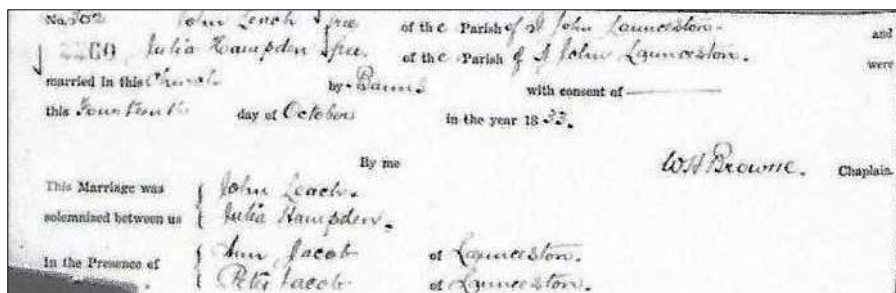 No. 302 John Leach free of the Parish of St John Launceston. and
2260 Julia Hampden free. of the Parish of St John Launceston. were
married in this Church by Banns with consent of
this Fourteenth day of October in the year 1833.
By me WH Browne. Chaplain.
This Marriage was John Leach.
solemnized between us Julia Hampden.
In the Presence of Ann Jacob of Launceston.
Peter Jacob of Launceston.